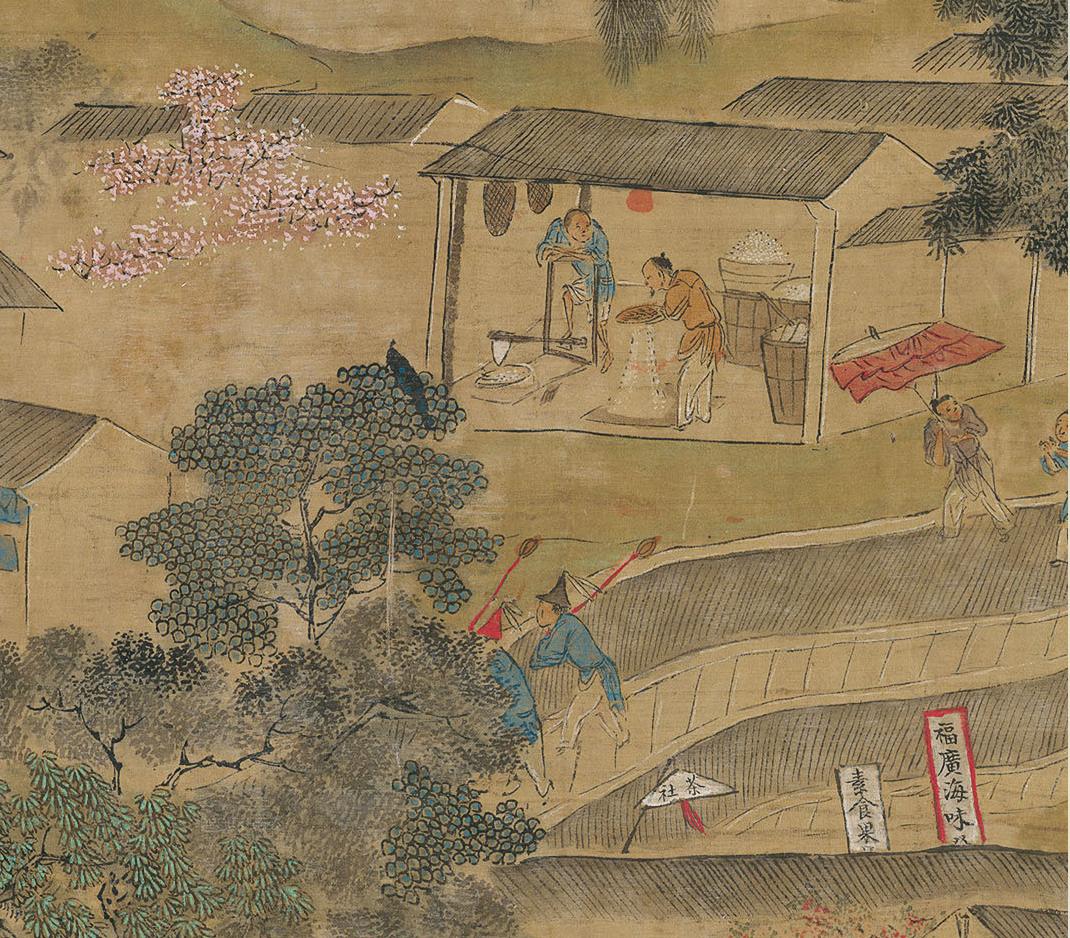 福廣海味
素食果
茶社